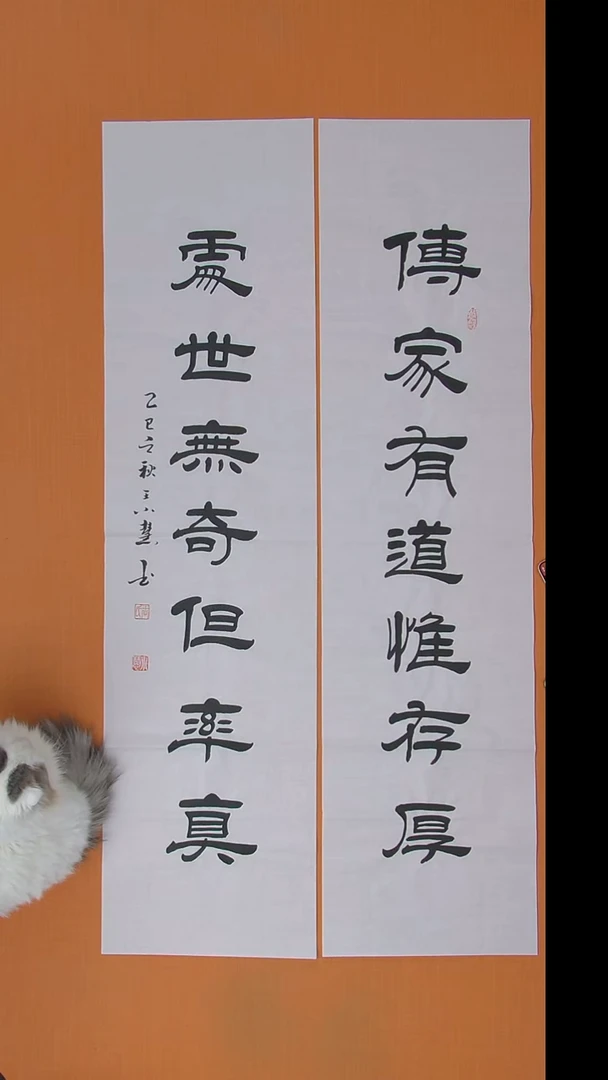 傳家有道惟存厚
處世無奇但率真
乙巳之秋